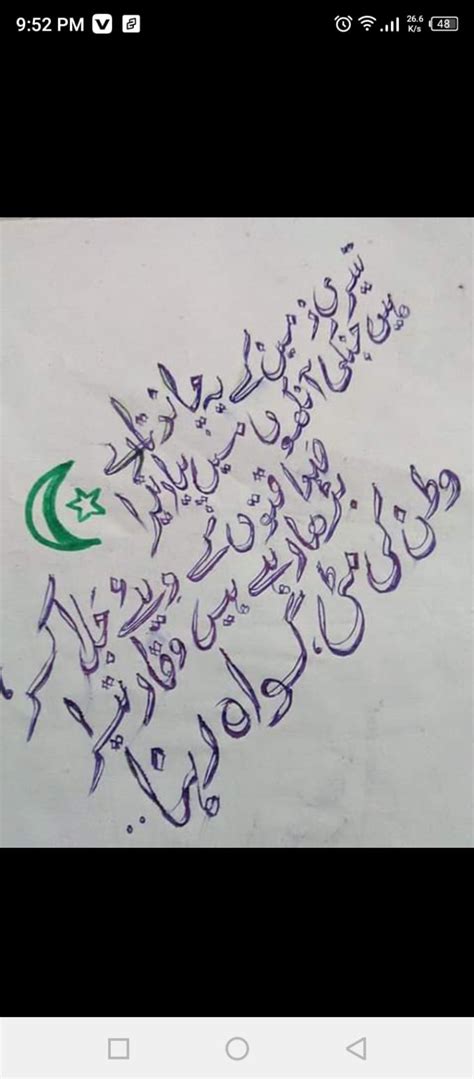 9:52 PM V 26.6 K/s 48
تیری زمین کے یہ چاند تارے
ہیں جنکی آنکھوں میں پیار تیرا
کے دیئے جلا کر
بڑھا رہے ہیں وقار تیرا
وطن کی مٹی گواہ رہنا..